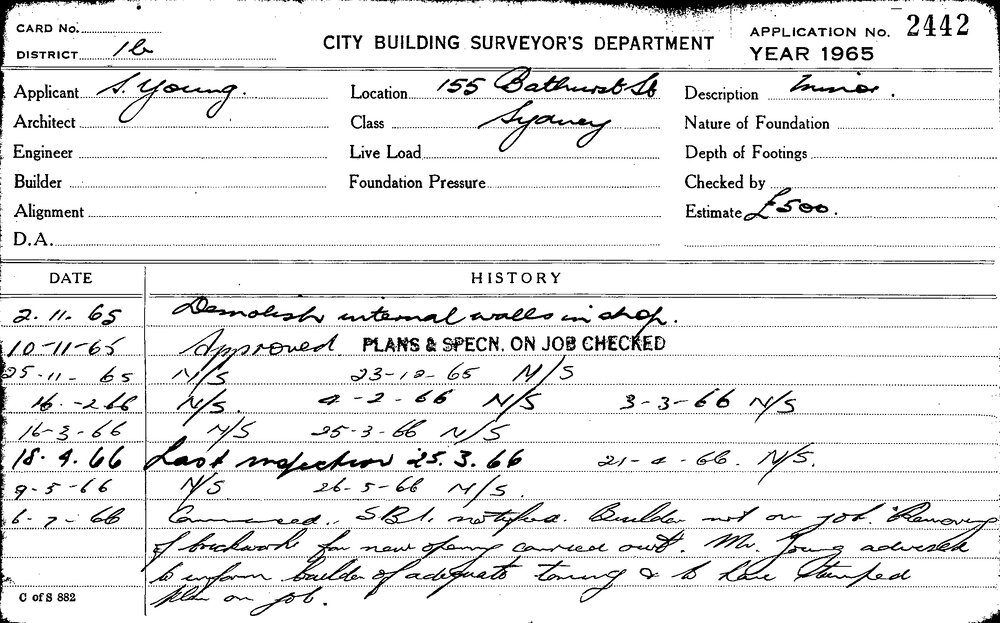 CARD No.
DISTRICT 1b
CITY BUILDING SURVEYOR'S DEPARTMENT
APPLICATION No. 2442
YEAR 1965
Applicant S. Young.
Location 155 Bathurst St
Description minor.
Architect
Class Sydney
Nature of Foundation
Engineer
Live Load
Depth of Footings
Builder
Foundation Pressure
Checked by
Alignment
Estimate £500.
D.A.
DATE HISTORY
2. 11. 65 Demolish internal walls in shop.
10-11-65 Approved PLANS & SPECN. ON JOB CHECKED
25-11-65 N/S 23-12-65 N/S
16.-2 66 N/S. 4-2-66 N/S 3-3-66 N/S
16-3-66 N/S 25-3-66 N/S
18. 4. 66 Last inspection 25. 3. 66 21-4-66. N/S.
9-5-66 N/S. 26-5-66 N/S.
6-7-66 Commenced. S.B.I. notified. Builder not on job. Removing
of brickwork for new opening carried out. Mr. Young advised
to inform builder of adequate & to have stamped
plan on job.
C of S 882